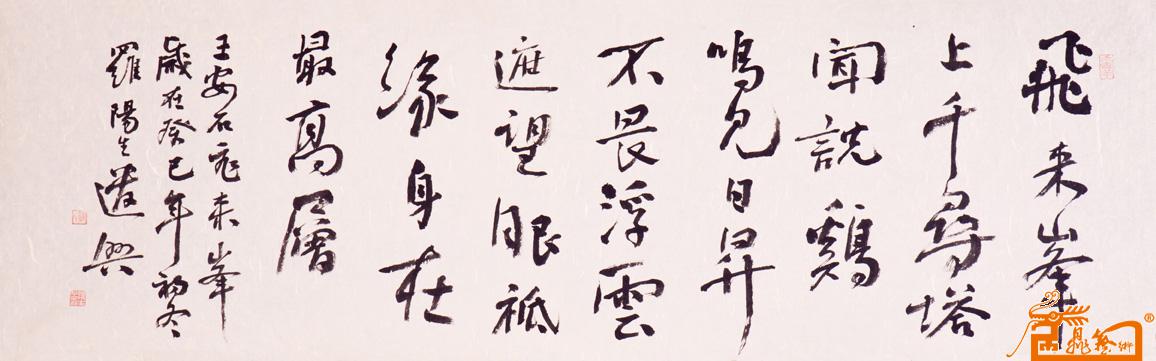 飛來峯
上千尋塔
聞説鷄
鳴見日昇
不畏浮雲
遮望眼祗
緣身在
最高層
王安石飛來峯
歲在癸巳年初冬
羅陽生遣興